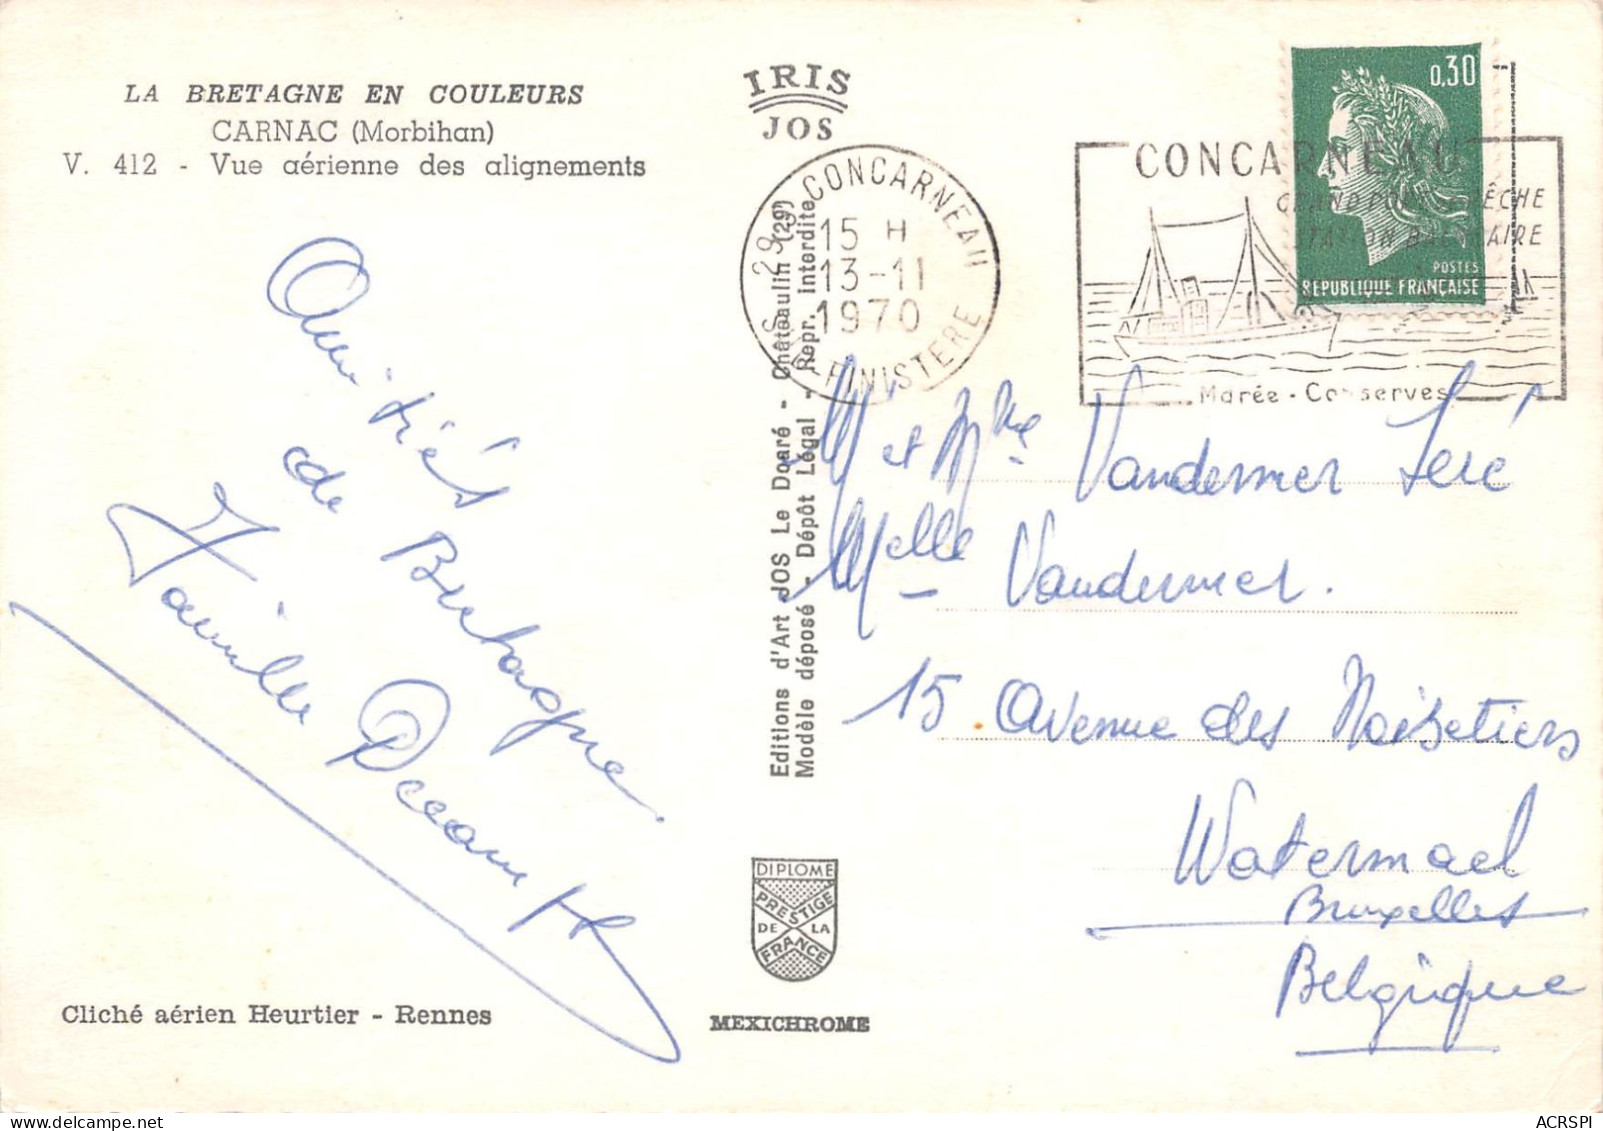 LA BRETAGNE EN COULEURS
CARNAC (Morbihan)
V. 412 - Vue aérienne des alignements
Amitiés
de Bretagne
Famille
Cliché aérien Heurtier - Rennes
IRIS
JOS
Editions d'Art JOS Le Doaré - Châteaulin (29)
Modèle déposé - Dépôt Légal - Repr. Interdite
DIPLOME
PRESTIGE
DE LA
FRANCE
MEXICHROME
29 CONCARNEAU
15 H
13-11
1970
FINISTERE
CONCARNEAU
GRAND PORT PÊCHE
STATION BALNEAIRE
Marée - Conserves
0,30
POSTES
REPUBLIQUE FRANÇAISE
M et Mme Vandermer
Melle Vandermer.
15 Avenue des Noisetiers
Watermael
Bruxelles
Belgique
ACRSPI